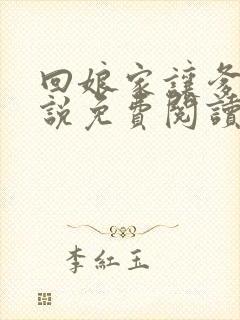 回娘家讓爹
說免費閱讀
李紅玉